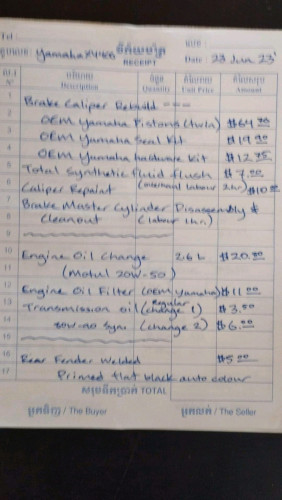 Tel :
Yamaha XV400 វិក័យប័ត្រ
RECEIPT Date : 23 Jun. 23'
Description Quantity Unit Price Amount
1 Brake Caliper Rebuild
2 OEM Yamaha Pistons (twin) $64
3 OEM Yamaha Seal Kit $19
4 OEM Yamaha hardware kit $12
5 Total Synthetic fluid flush $7.00
6 Caliper Repaint labour 2hr) $10.00
7 Brake Master Cylinder Disassembly &
8 Cleanout (labour 1hr.)
10 Engine Oil Change 2.6 L $20
(Motul 20W-50)
12 Engine Oil Filter (OEM Yamaha) $11.00
13 Transmission oil (Regular change 1) $3.50
14 80W-90 Syn. (change 2) $6.00
15
16 Rear Fender Welded $5.00
17 Primed flat black auto colour
TOTAL
អ្នកទិញ / The Buyer អ្នកលក់ / The Seller